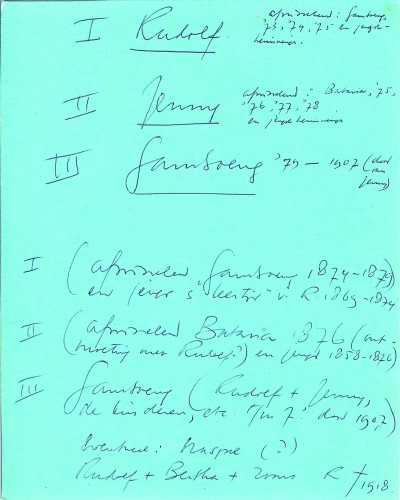 I Rudolf. afwisselend: Gamboeng,
'73, '74, '75 en jeugd-
herinneringen.
II Jenny afwisselend: Batavia, '75,
'76, '77, '78
en jeugdherinneringen
III Gamboeng '79 — 1907 (dood
van
Jenny)
I (afwisselend Gamboeng 1874-1879)
en jeugd v. R. 1869-1874
II (afwisselend Batavia 1876 (ont-
moeting met Rudolf?) en jeugd 1858-1876)
III Gamboeng (Rudolf + Jenny,
de kinderen, etc. t/m J! dood 1907)
Eventueel: (?)
Rudolf + Bertha + zoons R † 1918